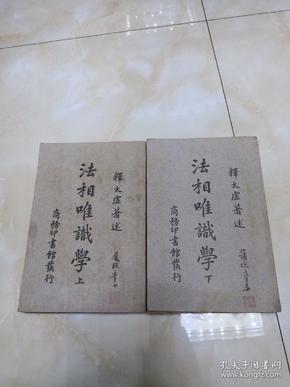 釋太虛著述
法相唯識學 上
商務印書館發行
釋太虛著述
法相唯識學 下
商務印書館發行
孔夫子旧书网